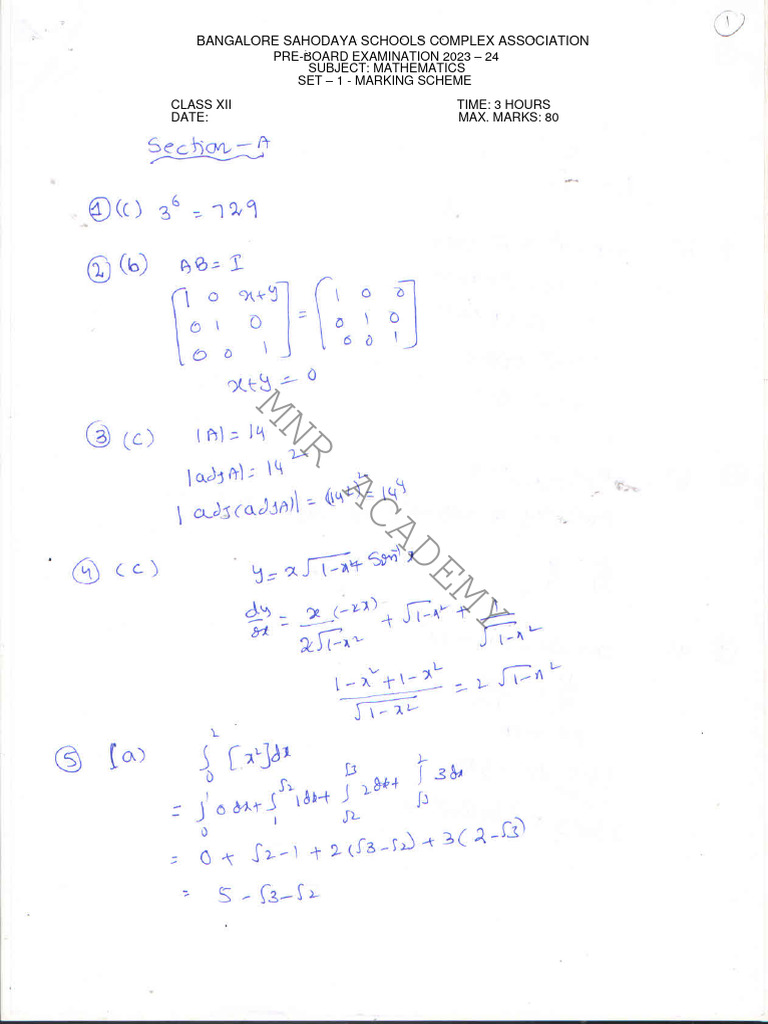 1
BANGALORE SAHODAYA SCHOOLS COMPLEX ASSOCIATION
PRE-BOARD EXAMINATION 2023 – 24
SUBJECT: MATHEMATICS
SET – 1 - MARKING SCHEME
CLASS XII TIME: 3 HOURS
DATE: MAX. MARKS: 80
Section – A
① (C) 3⁶ = 729
② (b) AB = I
[1 0 x+y] = [1 0 0]
[0 1 0] [0 1 0]
[0 0 1] [0 0 1]
x+y = 0
③ (C) |A| = 14
|adjA| = 14²
|adj(adjA)| = (14²)² = 14⁴
④ (C) y = x√1-x² + Sin⁻¹x
dy/dx = x(-2x)/2√1-x² + √1-x² + 1/√1-x²
1-x²+1-x²/√1-x² = 2√1-x²
⑤ (a) ∫₀² [x²]dx
= ∫₀¹ 0 dx + ∫₁^√2 1dx + ∫_√2^√3 2dx + ∫_√3^2 3dx
= 0 + √2-1 + 2(√3-√2) + 3(2-√3)
= 5-√3-√2
MNR ACADEMY